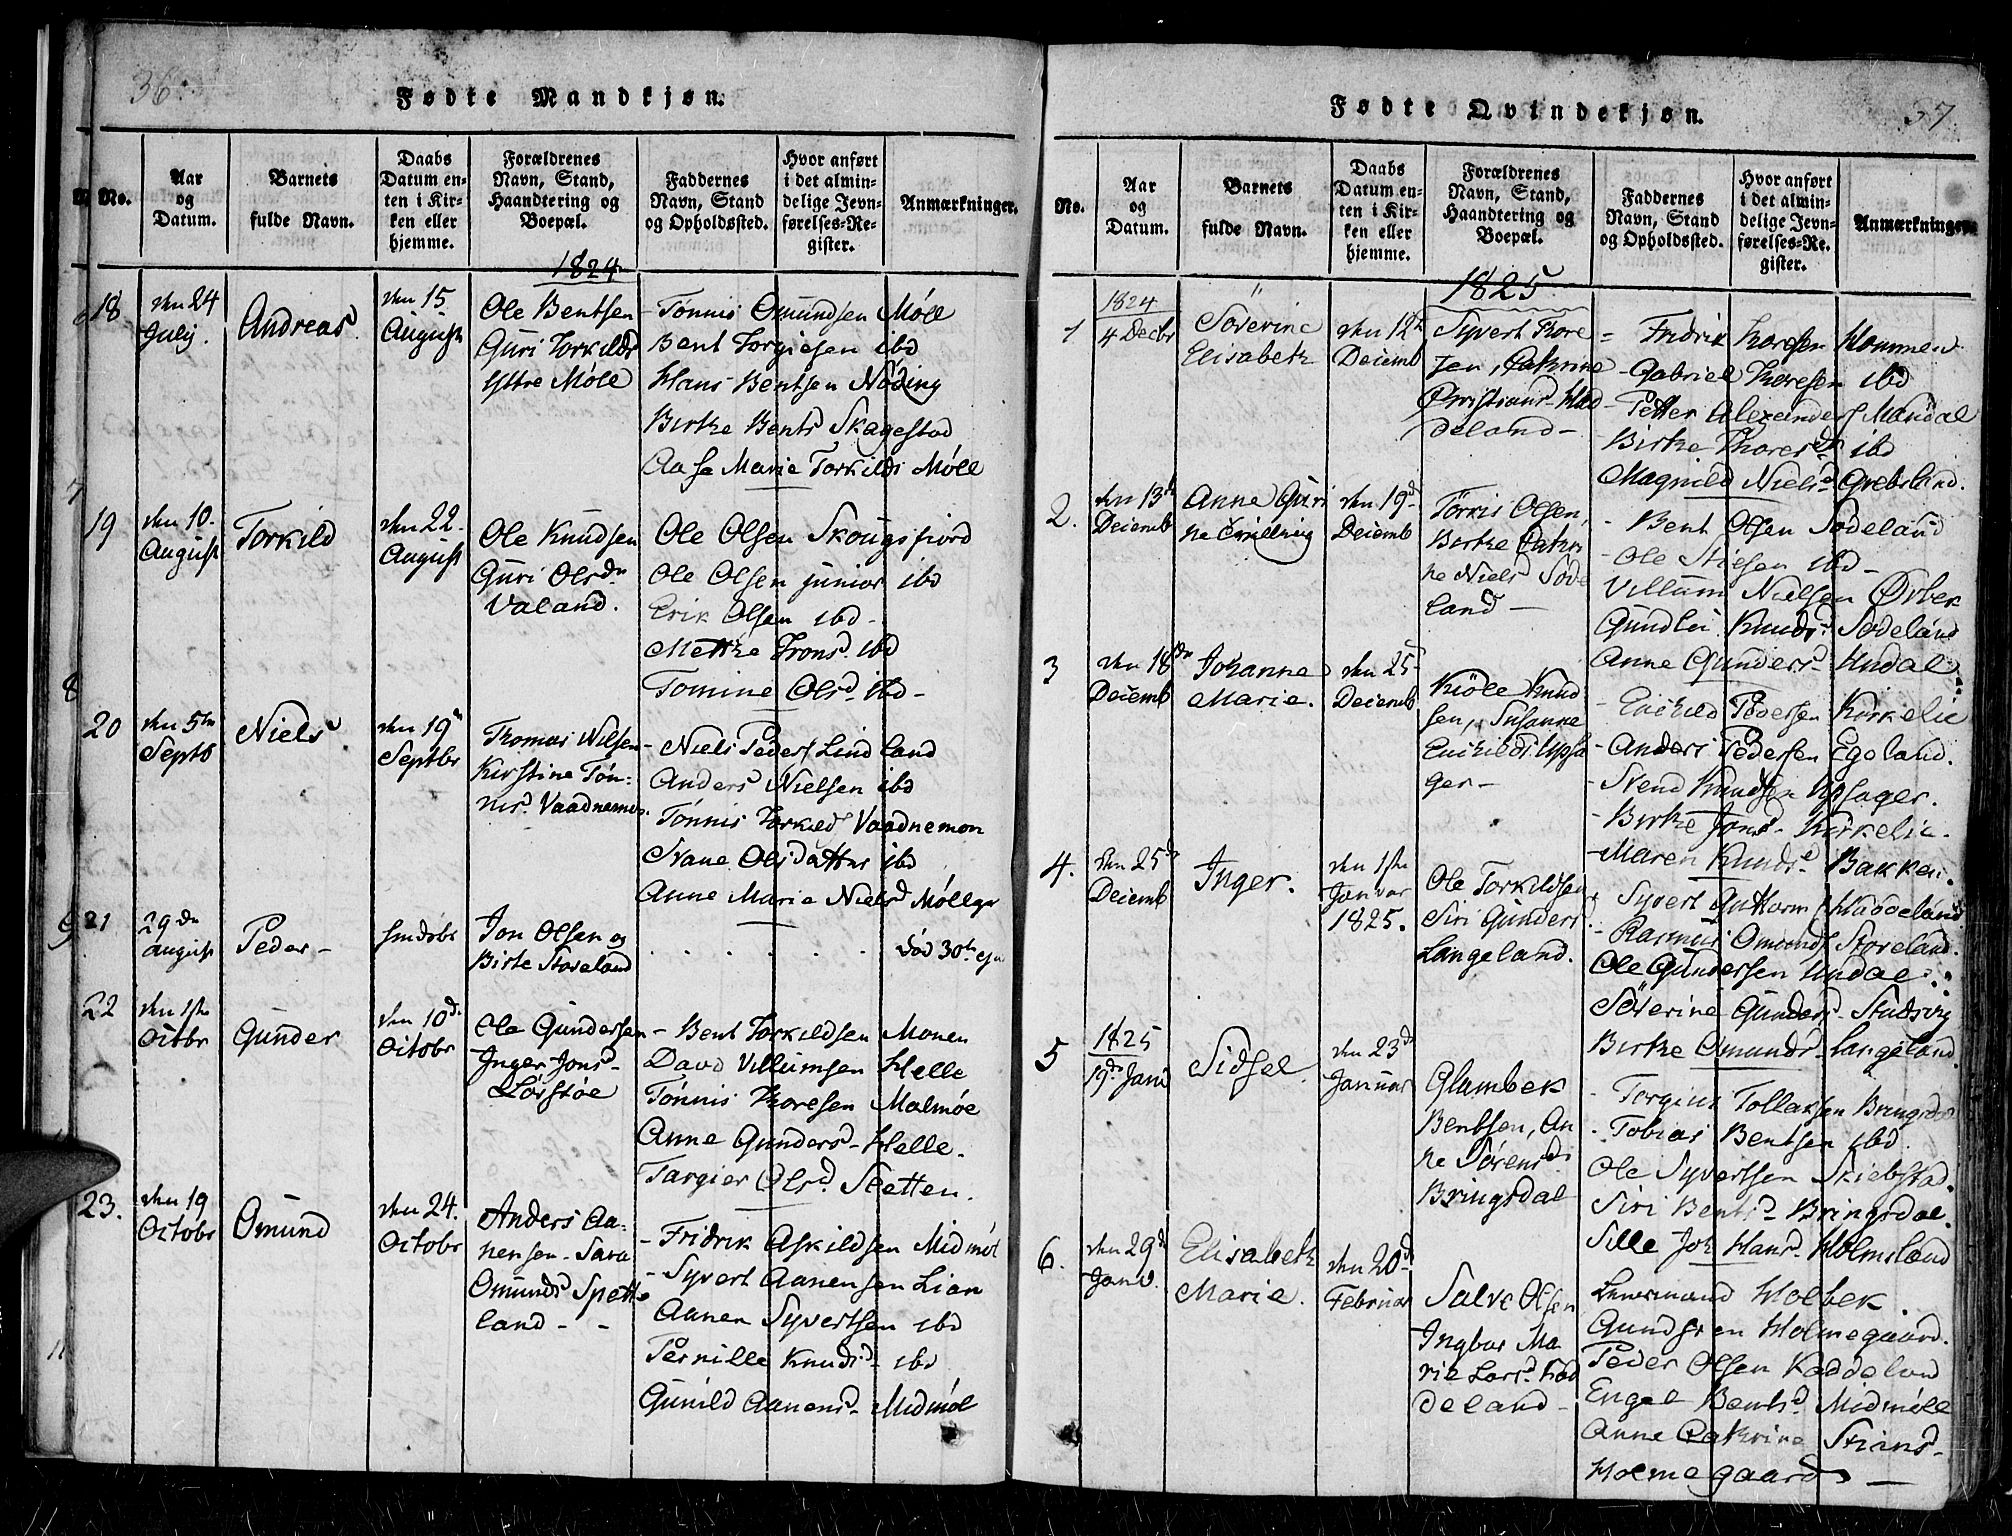 36
Fødte Mandkjøn.
No.
Aar
og
Datum.
Barnets
fulde Navn.
Daabs
Datum en-
ten i Kir-
ken eller
hjemme.
Forældrenes
Navn, Stand,
Haandtering og
Boepæl.
Faddernes
Navn, Stand
og Opholdssted.
Hvor anført
i det almin-
delige Jevn-
førelses-Re-
gister.
Anmærkninger.
1824
18
den 24
July.
Andreas
den 15
August
Ole Bentsen
Guri Torkilds
Yttre Møll
Tønnis Omundsen Møll
Bent Torgiesen ibd
Hans Bentsen Nøding
Birke Bents Skagestad
Aase Marie Torkilds Møll
19
den 10.
August
Torkild
den 22.
August
Ole Knudsen
Guri Olsdr
Valand.
Ole Olsen Skougsfiord
Ole Olsen junior ibd
Erik Olsen ibd -
Mette Trons. ibd
Tomine Olsd ibd -
20
den 5te
Septb
Niels
den 19
Septbr
Thomas Nilsen
Kirstine Tøn-
nisd. Vaadnemon
- Niels Peders Lindland
Anders Nielsen ibd
Tønnis Torkild Vaadnemon
Svane Olsdatter ibd
Anne Marie Nielsd
21
29de
August
Peder -
Jon Olsen og
Birte Storeland
22
den 1ste
Octbr
Gunder
den 10d.
Octobr
Ole Gundersen
Inger Jons-
- Bent Torkildsen Monen
David Villumsen Helle
Tønnis Thoresen Malmøe
Anne Gundersd - Helle.
Targier Olsd. Sletten.
23.
den 19
Octobr
Omund
den 24.
Octobr
Anders Aa-
nensen - Sara
Omunds Spette
land - -
- Fridrik Askildsen Midmøl
- Syvert Aanensen Lian
Aanen Syvertsen ibd
Pernille Knudsd - ibd
Gunild Aanensd - Midmøl
37
Fødte Qvindekjøn.
No.
Aar
og
Datum.
Barnets
fulde Navn.
Daabs
Datum en-
ten i Kir-
ken eller
hjemme.
Forældrenes
Navn, Stand,
Haandtering og
Boepæl.
Faddernes
Navn, Stand
og Opholdssted.
Hvor anført
i det almin-
delige Jevn-
førelses-Re-
gister.
Anmærkninger
1825
1
1824
4 Decbr
Søverine
Elisabeth
den 12te
Deiemb
Syvert Thore
sen, Cathrine
Christians - Had
deland -
= Fridrik Thoresen Hommen
- Gabriel Thoresen ibd
- Petter Alexanders Mandal
Birke Thoresd ibd
Magnild Nielsd Grebsland.
2.
den 13d
Deiemb
Anne Guri
ne
den 19d
Deiemb
Tørris Olsen,
Birthe Cathri
ne Nielsd Søde
land -
- Bent Olsen Sødeland
- Ole Stiesen ibd -
Villum Nielsen Ørbek
Gundlei Knudsd Sødeland
Anne Gundersd Undal
3
den 18de
Deiemb
Johanne
Marie.
den 25
Deiemb
Kiøle Knud
sen, Susanne
Enekilds Upsa
ger -
- Enekild Pedersen Kirkelie
- Anders Pedersen Egeland.
- Svend Knudsen Upsager.
- Birke Jonsd - Kirkelie -
- Maren Knudsd Bakken
4.
den 25d
Deiemb
Inger.
den 1ste
Januar
1825.
Ole Torkildsen
Siri Gunders
Langeland.
Syvert Guttorms Haddeland
- Rasmus Omunds Storeland.
Ole Gundersen Undal
Søverine Gunders - Studsvig
Birke Omundsd - Langeland
5
1825
19de Janv
Sidsel
den 23d
Januar
Glambek
Bentsen, An
ne Sørensd.
Bringsdal
- Torgius Tollaksen Bringsdal
- Tobias Bentsen ibd.
Ole Syvertsen Skiebstad.
Siri Bentsd - Bringsdal.
Sille Joh Hansd - Holmsland
6.
den 29d
Janv.
Elisabeth
Marie.
den 20d
Februar
Salve Olsen
Ingbor Ma
rie Larsd. Had
deland -
Lensmand Holbek.
Holmegaard.
Peder Olsen Haddeland
Engel Bentsd Midmøll
Anne Cathrine Stians-
Holmegaard -